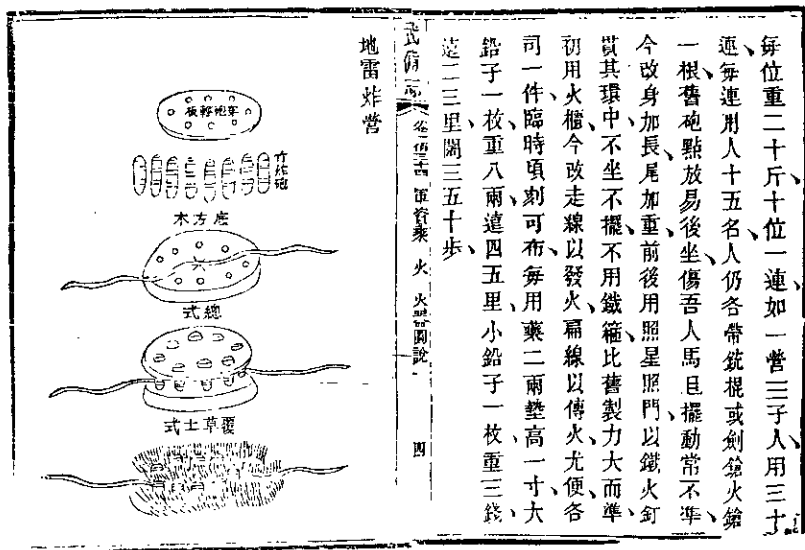 每位重二十斤十位一連如一營三子人用三十
連每連用人十五名人仍各帶銃棍或劍鎗火鎗
一根舊砲點放易後坐傷吾人馬且擺動常不準
今改身加長尾加重前後用照星照門以鐵火釘
貫其環中不坐不擺不用鐵箍比舊製力大而準
初用火櫃今改走線以發火扁線以傳火尤便各
司一件臨時頃刻可布每用藥二兩墊高一寸大
鉛子一枚重八兩遠四五里小鉛子一枚重三錢
遠二三里闊三五十步
武備志 軍資乘 火 火器圖說一 四
地雷炸營
竹炸砲
木方底
式總
式士草覆